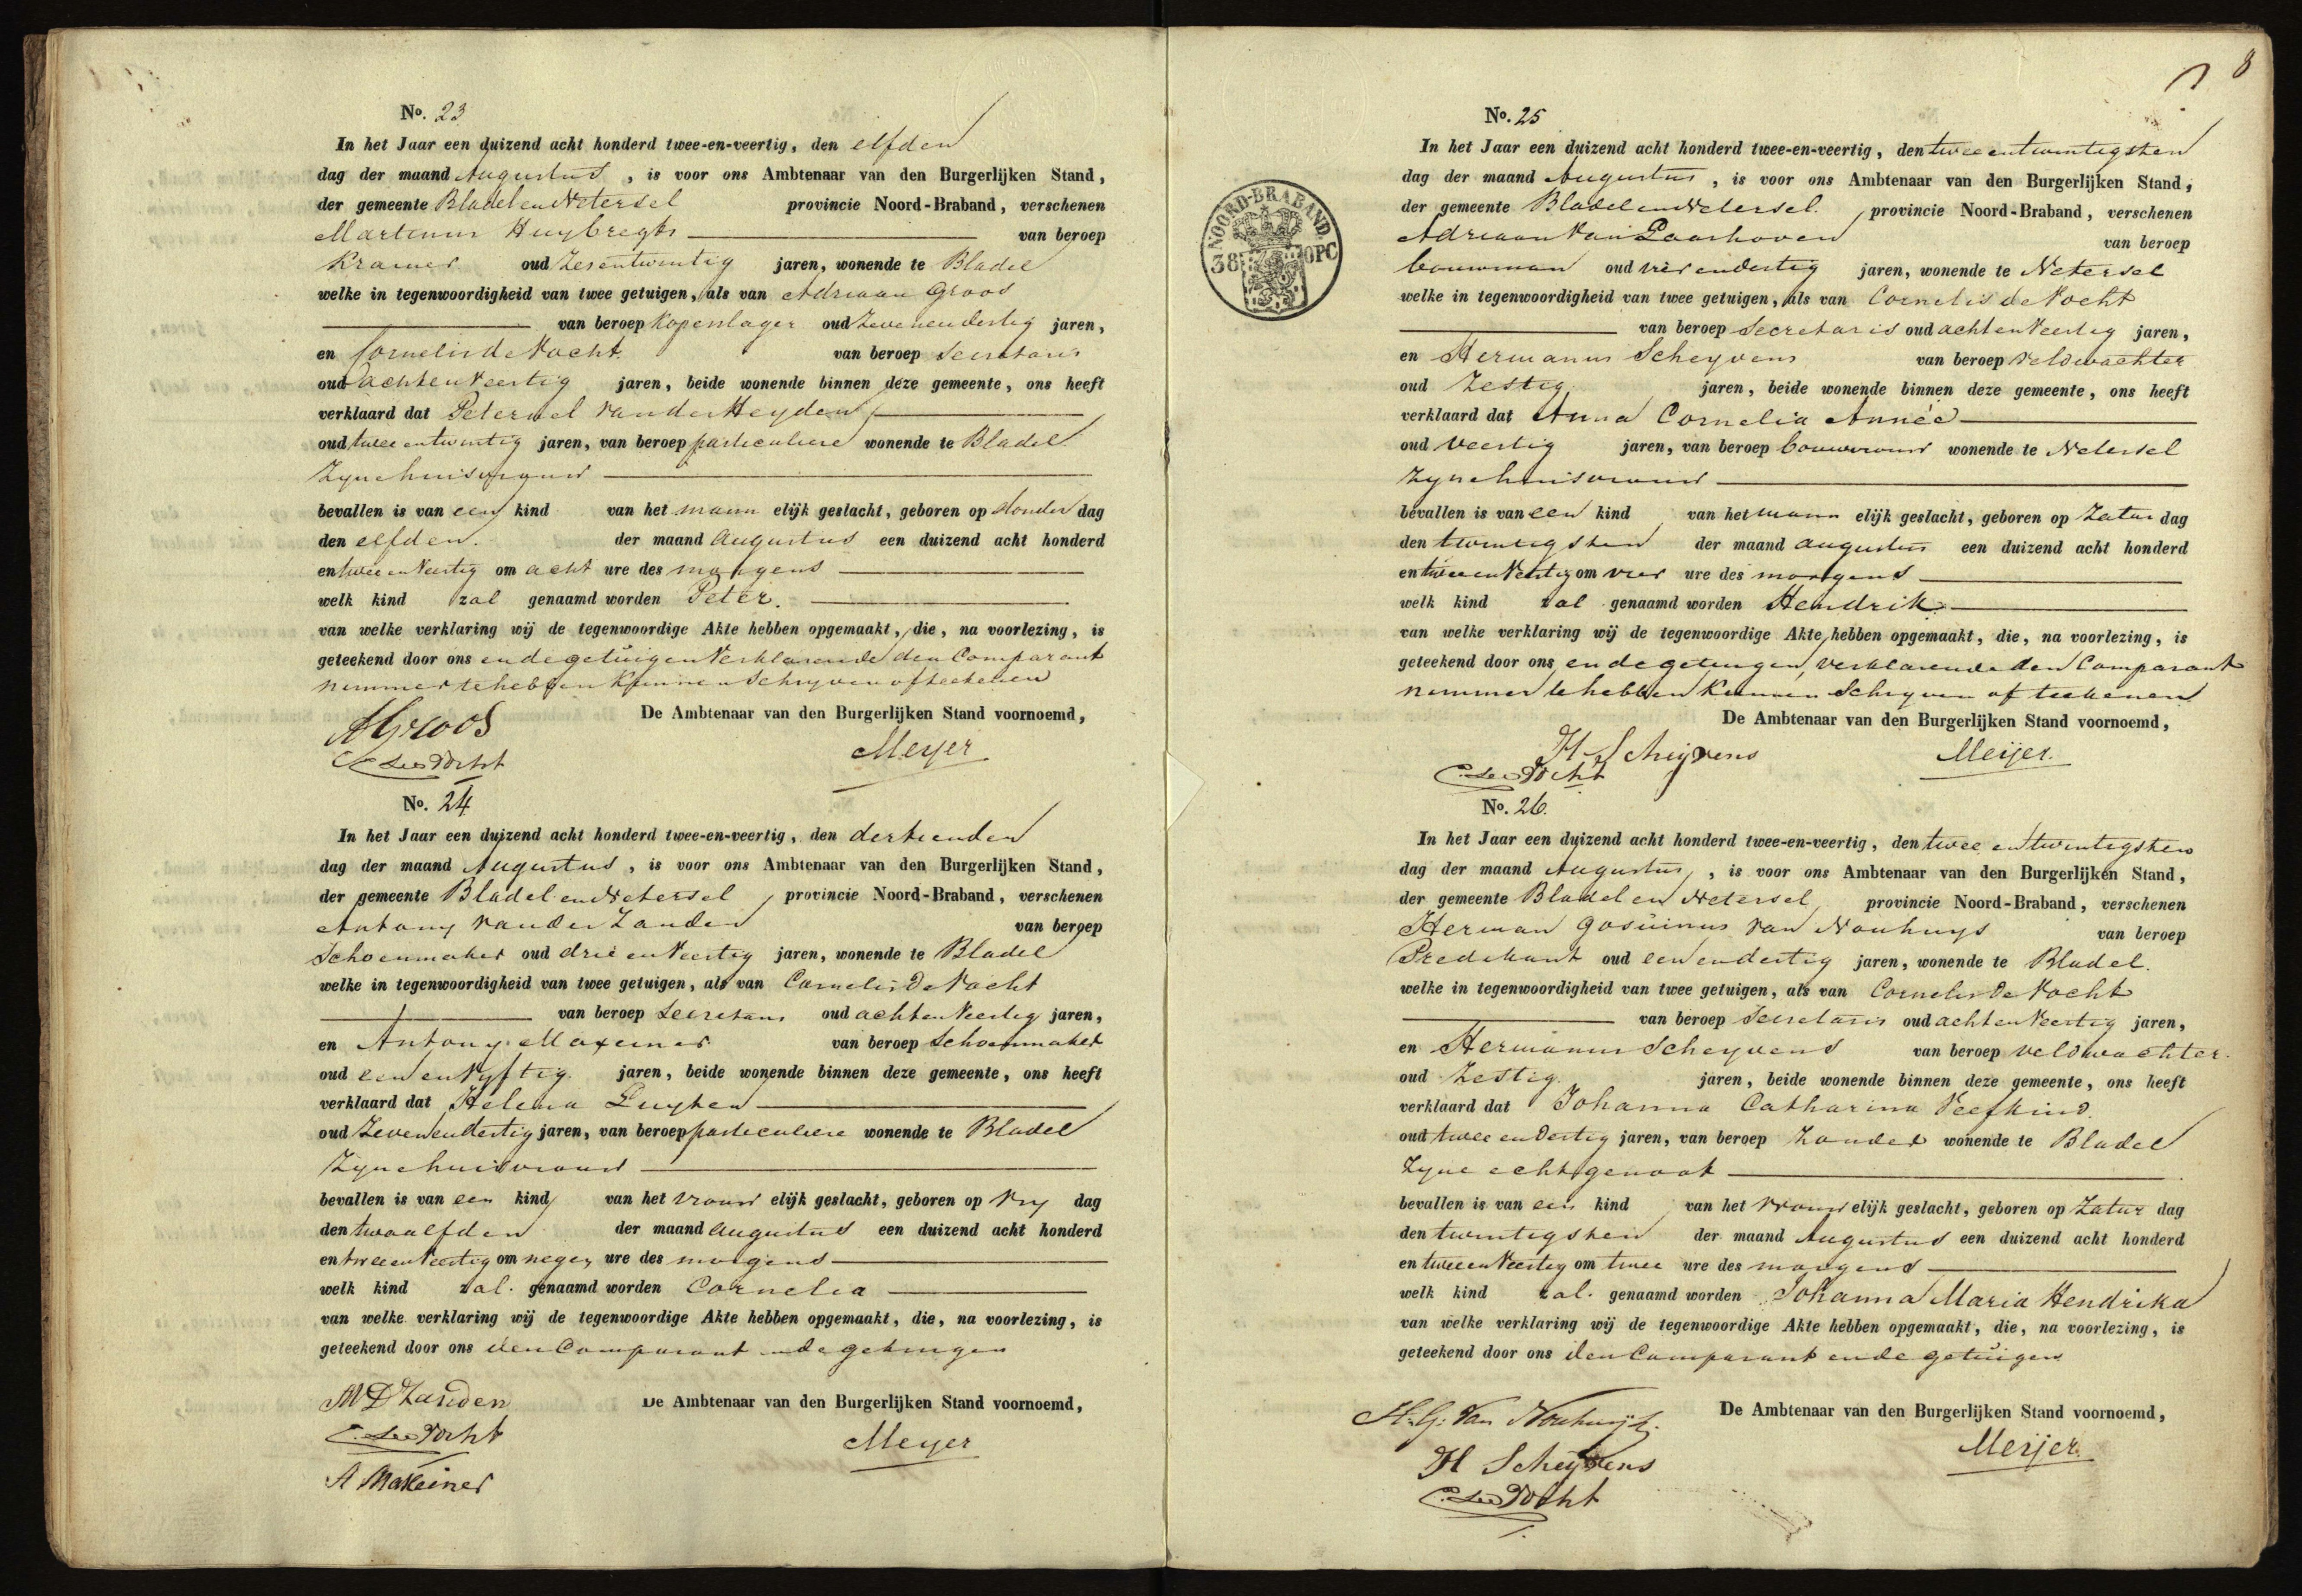 No. 23
In het Jaar een duizend acht honderd twee-en-veertig, den elfden
dag der maand Augustus, is voor ons Ambtenaar van den Burgerlijken Stand,
der gemeente Bladel en Netersel provincie Noord-Braband, verschenen
Martinus Huybregts van beroep
Kramer oud Zesentwintig jaren, wonende te Bladel
welke in tegenwoordigheid van twee getuigen, als van Adriaan Groos
van beroep Koperslager oud Zevenendertig jaren,
en Cornelis de Vocht van beroep Secretaris
oud achtenVeertig jaren, beide wonende binnen deze gemeente, ons heeft
verklaard dat Peternel van der Heyden
oud twee entwintig jaren, van beroep particuliere wonende te Bladel
Zyne huisvrouw
bevallen is van een kind van het mann elijk geslacht, geboren op donder dag
den elfden. der maand Augustus een duizend acht honderd
en twee en Veertig om acht ure des morgens
welk kind zal genaamd worden Peter.
van welke verklaring wij de tegenwoordige Akte hebben opgemaakt, die, na voorlezing, is
geteekend door ons en de getuigen Verklarende den Comparant
nimmer te hebben Kunnen Schryven of teekenen
De Ambtenaar van den Burgerlijken Stand voornoemd,
AGroos
C de Vocht
Meyer
No. 24
In het Jaar een duizend acht honderd twee-en-veertig, den dertienden
dag der maand Augustus, is voor ons Ambtenaar van den Burgerlijken Stand,
der gemeente Bladel en Netersel provincie Noord-Braband, verschenen
Antony van der Zanden van beroep
Schoenmaker oud drie en Veertig jaren, wonende te Bladel
welke in tegenwoordigheid van twee getuigen, als van Cornelis De Vocht
van beroep Secretaris oud achtenVeertig jaren,
en Antony Maxeiner van beroep Schoenmaker
oud een en Vyftig jaren, beide wonende binnen deze gemeente, ons heeft
verklaard dat Helena Luyken
oud Zevenendertig jaren, van beroep particuliere wonende te Bladel
Zyne huisvrouw
bevallen is van een kind van het vrouw elijk geslacht, geboren op Vry dag
den twaalfden der maand Augustus een duizend acht honderd
en twee en Veertig om negen ure des morgens
welk kind zal. genaamd worden Cornelia
van welke verklaring wij de tegenwoordige Akte hebben opgemaakt, die, na voorlezing, is
geteekend door ons den Comparant en de getuigen
De Ambtenaar van den Burgerlijken Stand voornoemd,
AVDZanden
C. de Vocht
A Maxeiner
Meyer
8
NOORD-BRABAND.
38
No. 25
In het Jaar een duizend acht honderd twee-en-veertig, den twee entwintigsten
dag der maand Augustus, is voor ons Ambtenaar van den Burgerlijken Stand,
der gemeente Bladel en Netersel. provincie Noord-Braband, verschenen
Adriaan Van Laarhoven van beroep
bouwman oud vier endertig jaren, wonende te Netersel
welke in tegenwoordigheid van twee getuigen, als van Cornelis de Vocht
van beroep Secretaris oud achtenVeertig jaren,
en Hermanus Scheyvens van beroep Veldwachter
oud Zestig jaren, beide wonende binnen deze gemeente, ons heeft
verklaard dat Anna Cornelia Année
oud Veertig jaren, van beroep bouwvrouw wonende te Netersel
Zyne huisvrouw
bevallen is van een kind van het mann elijk geslacht, geboren op Zatur dag
den twintigsten der maand augustus een duizend acht honderd
en twee en Veertig om vier ure des morgens
welk kind zal genaamd worden Hendrik
van welke verklaring wij de tegenwoordige Akte hebben opgemaakt, die, na voorlezing, is
geteekend door ons en de getuigen, verklarende den Comparant
nimmer te hebben Kunnen Schryven of teekenen
De Ambtenaar van den Burgerlijken Stand voornoemd,
H Scheijvens
C. de Vocht
Meijer.
No. 26.
In het Jaar een duizend acht honderd twee-en-veertig, den twee entwintigsten
dag der maand Augustus, is voor ons Ambtenaar van den Burgerlijken Stand,
der gemeente Bladel en Netersel provincie Noord-Braband, verschenen
Herman Gosuinus van Nouhuys van beroep
Predikant oud een endertig jaren, wonende te Bladel.
welke in tegenwoordigheid van twee getuigen, als van Cornelis De Vocht
van beroep Secretaris oud achtenVeertig jaren,
en Hermanus Scheyvens van beroep veldwachter.
oud Zestig. jaren, beide wonende binnen deze gemeente, ons heeft
verklaard dat Johanna Catharina Veefkind.
oud twee en Dertig jaren, van beroep Zonder wonende te Bladel
Zyne echtgenoot
bevallen is van een kind van het vrouw elijk geslacht, geboren op Zatur dag
den twintigsten der maand Augustus een duizend acht honderd
en twee en Veertig om twee ure des morgens
welk kind zal. genaamd worden Johanna Maria Hendrika
van welke verklaring wij de tegenwoordige Akte hebben opgemaakt, die, na voorlezing, is
geteekend door ons den Comparant en de getuigen
De Ambtenaar van den Burgerlijken Stand voornoemd,
H. G. Van Nouhuijs.
H Scheyvens
C. de Vocht
Meijer.